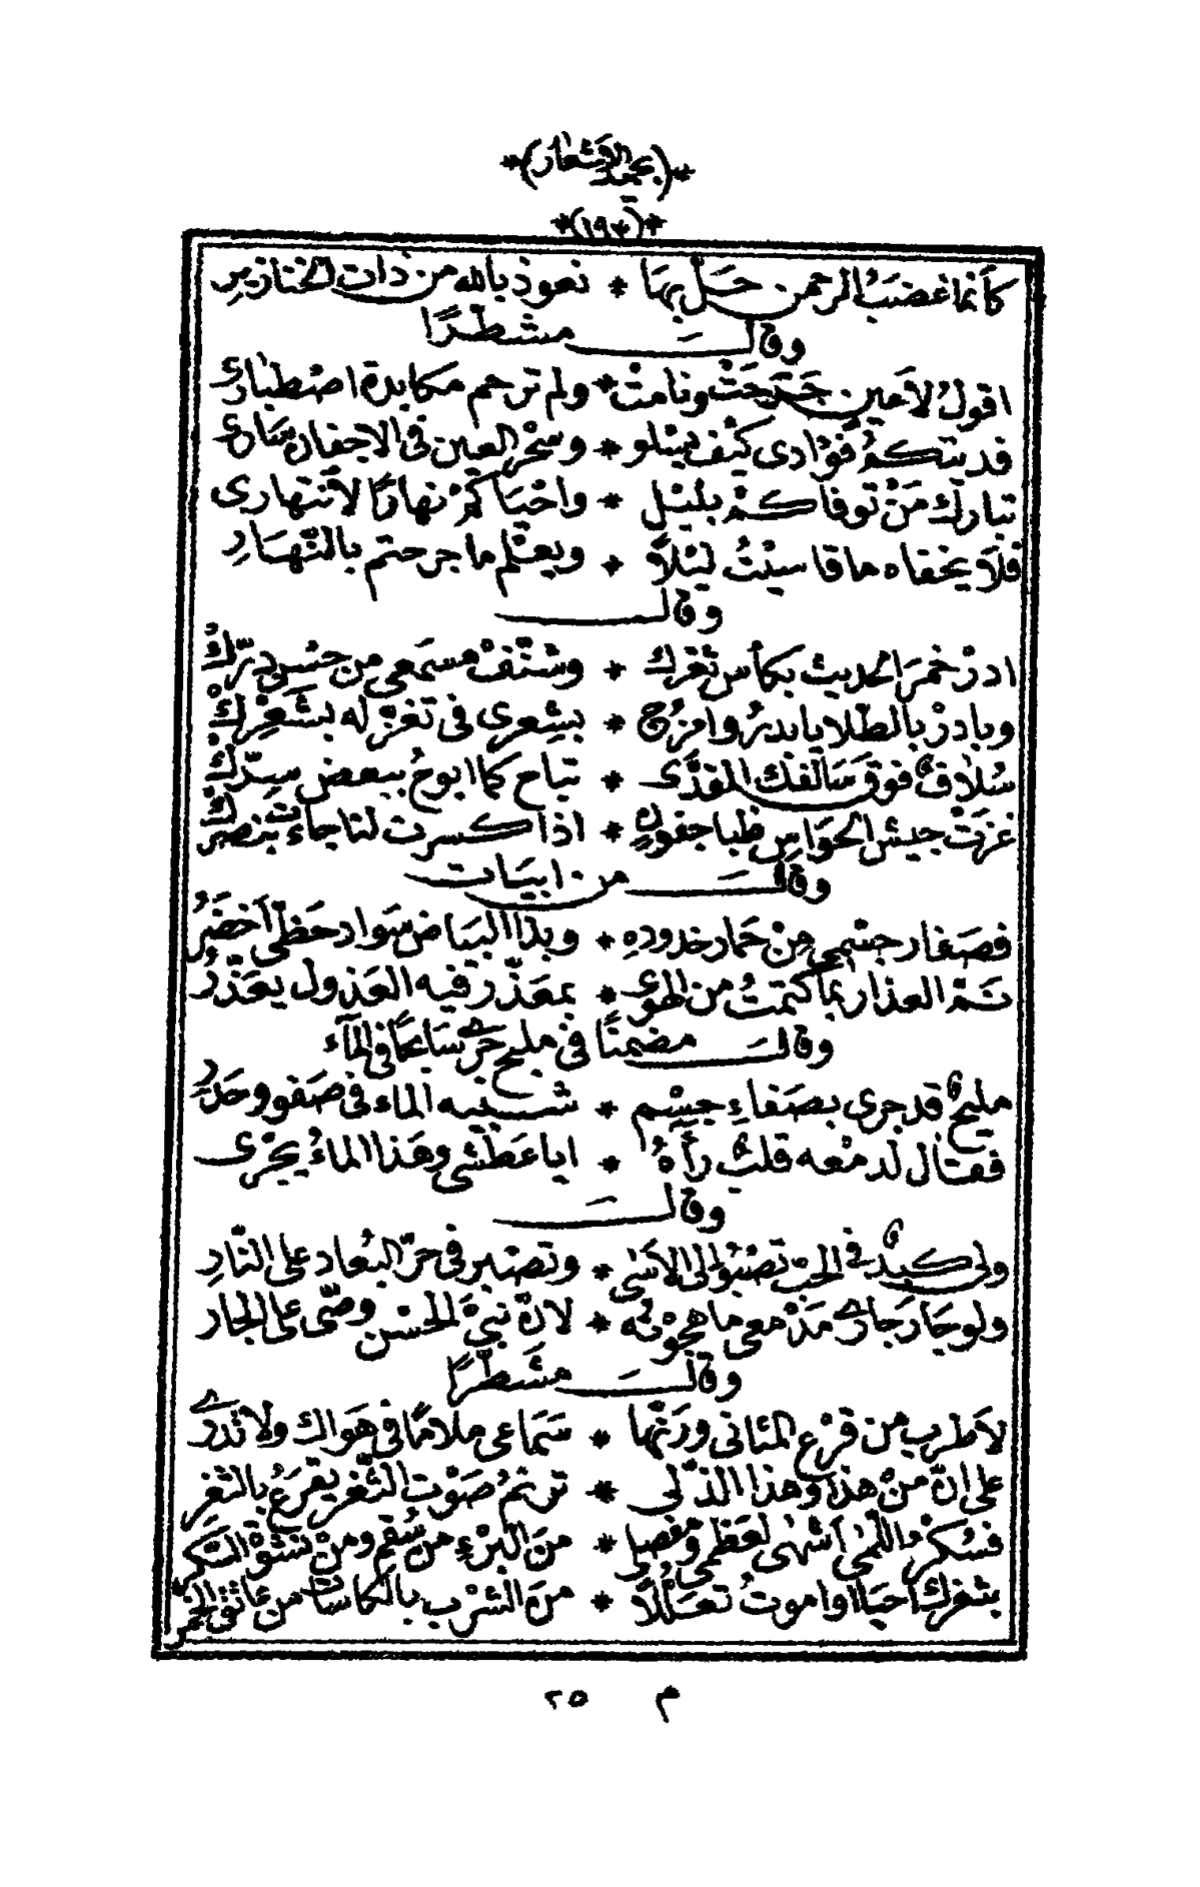 *(بحمد الاشعار)*
*(١٩٣)*
كأنما غضبُ الرحمن حَلَّ بهَا * نعوذ بالله من ذات الخنازيرِ
وقالَ مشطرًا
اقولُ لأعينٍ جَرَحَتْ ونامتْ * ولم ترحم مكابدة اصْطبارى
فديتكمُ فؤادى كيْف يسْلو * وسحْر العين فى الاجفان سَارى
تباركَ مَنْ توفاكمْ بليْلٍ * واحْياكمْ نهارًا لانتهارى
فلَا يخفاه ما قاسيْتُ ليْلاً * ويعْلم ما جرحتم بالنّهَارِ
وقالَ
ادرْ خمْرَ الحديث بكأس ثغرك * وشنّفْ مسمَعى من حسْن درّكْ
وبادرْ بالطلا يا بدرُ وامزُج * بشِعرى فى تغزّله بشَعِركْ
سُلافٌ فوقَ سَالفك المفدَّى * تباح كما ابوحُ ببعض سِرّكْ
غزَتْ جيش الحوَاسِ ظبا جفونٍ * اذا كسرت لنا جاءَت بنصْركْ
وقالَ من ابيَات
فصَغار جسْمى مِنْ حمَار خدودهِ * وبذا البيَاض سَوادِ حَظّى أخضَرُ
نَمّ العذار بما كتمتُ من الهوى * بمعَذّر فيه العَذول يعَذّرُ
وقالَ مضمنًا فى مليح جرَى سَابحًا فى المآء
مليحٌ قد جرى بصَفاءِ جسْم * شبيه الماء فى صَفو وحَدْرِ
فقال لدمْعه قلبٌ رَآهُ * ايا عَطَشى وهَذا الماءُ يجْرى
وقالَ
ولى كبدٌ فى الحبّ تصْبُو الى الاسَى * وتصْبر فى حَرّ البُعاد على النّارِ
ولو جَارَ جَارى مَدْمعى ما هجوْته * لانّ نبىّ الحسْن وصّى على الجار
وقالَ مشَطّرًا
لأطرب من قرْع المثانى ورَنّها * سَمَاعى ملامًا فى هَوَاك ولا تدْرى
على انّ منْ هذا وهَذا الذّ لى * ترنّمُ صَوْت الثّغر يقرَعُ بالثغرِ
فسُكرُ اللّمى أشهٰى لعَظمى ومفصلى * منَ البُرْءِ من سُقمٍ ومنْ نشوْة السّكرِ
بثغرك احيَا او اموتُ تعَلّلاً * منَ الشرْب بالكاسَات من عَاتق الخمْرِ
م ٢٥